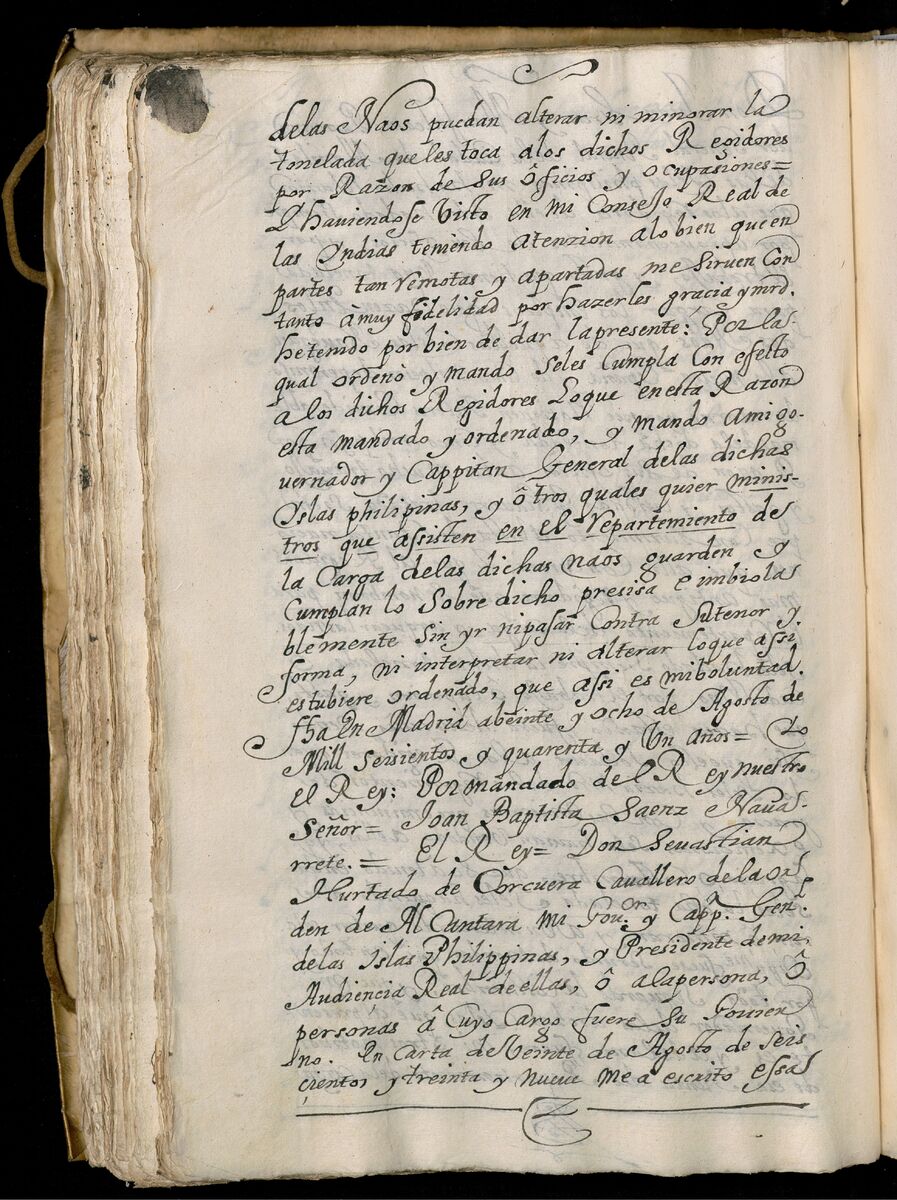 delas Naos puedan alterar ni minorar la
tonelada que les toca alos dichos Regidores
por Razon de sus óficios y ocupasiones=
Y haviendose Visto en mi Consejo Real de
las Yndias teniendo atenzion alo bien que en
partes tan remotas y apartadas me siruen Con
tanto â muy fidelidad por hazerles gracia y mrd.
he tenido por bien de dar la presente: Por la
qual ordenó y mando seles Cumpla Con efecto
a los dichos Regidores Loque en esta Razon
esta mandado y ordenado, y mando amigo-
vernador y Cappitan General delas dichas
Yslas philipinas, y ôtros quales quier minis-
tros que assisten en el repartemiento de
la Carga delas dichas naos guarden y
Cumplan lo sobre dicho presisa e imbiola
blemente sin yr ni pasar Contra su tenor y
forma, ni interpretar ni alterar loque assi
estubiere ordenado, que assi es mi boluntad.
fha En Madrid abeinte y ocho de Agosto de
Mill seisientos y quarenta y Un años= Yo
el Rey: Por mandado del Rey nuestro
señor= Joan Baptista Saenz e Nava-
rrete.= El Rey= Don Sevastian
Hurtado de Corcuera Cavallero dela or-
den de Alcantara mi Gou.or y Capp. Gen.l
delas islas Philippinas, y Presidente de mi
Audiencia Real de ellas, ô ala persona, ô
personas â Cuyo Cargo fuere su Gouier
no. En carta de Veinte de Agosto de seis
çientos y treinta y nueve me a escrito essa